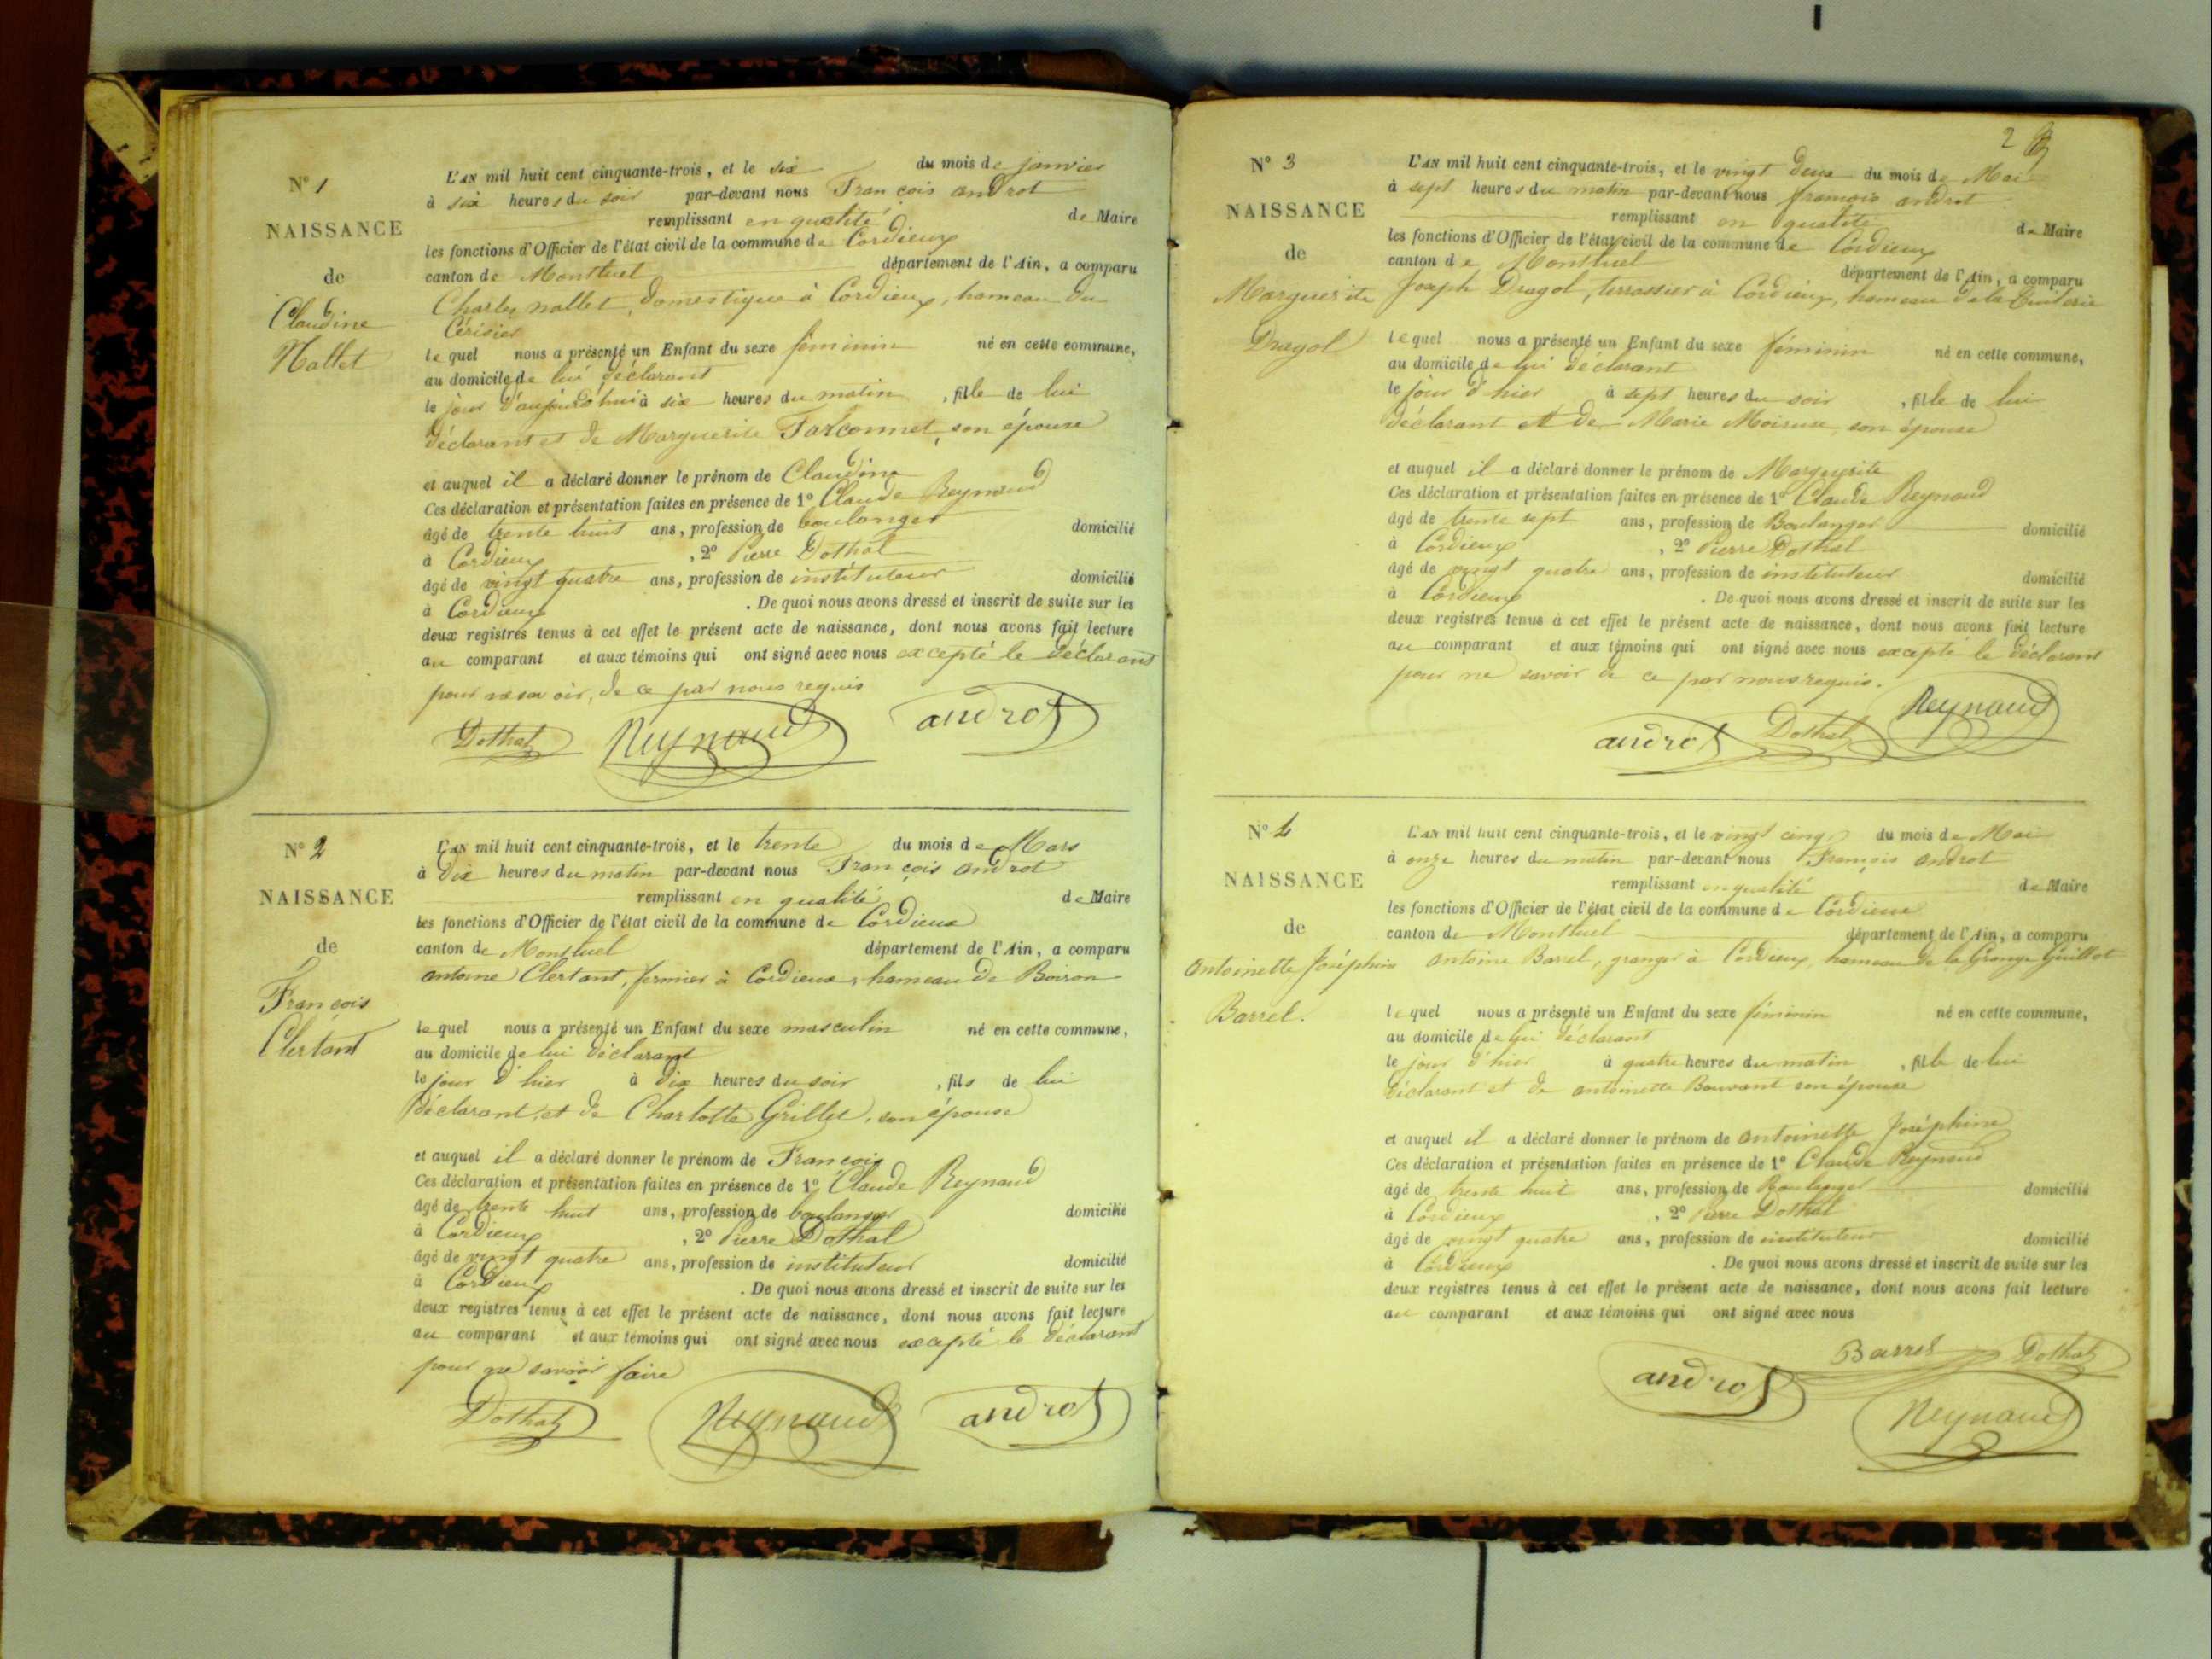 N° 1
NAISSANCE
de
Claudine
Nallet
L'AN mil huit cent cinquante-trois, et le six du mois de janvier
à six heures du soir par-devant nous François androt
remplissant en qualité de Maire
les fonctions d'Officier de l'état civil de la commune de Cordieux
canton de Montluel département de l'Ain, a comparu
Charles nallet, domestique à Cordieux, hameau du
Cérisier
lequel nous a présenté un Enfant du sexe féminin né en cette commune,
au domicile de lui déclarant
le jour d'aujourd'hui à six heures du matin, fille de lui
déclarant et de Marguerite Falconnet, son épouse
et auquel il a déclaré donner le prénom de Claudine
Ces déclaration et présentation faites en présence de 1° Claude Reynaud
âgé de trente huit ans, profession de boulanger domicilié
à Cordieux, 2° Pierre Dothal
âgé de vingt quatre ans, profession de instituteur domicilié
à Cordieux. De quoi nous avons dressé et inscrit de suite sur les
deux registres tenus à cet effet le présent acte de naissance, dont nous avons fait lecture
au comparant et aux témoins qui ont signé avec nous excepté le déclarant
pour ne savoir, de ce par nous requis
Dothal Reynaud androt
N° 2
NAISSANCE
de
François
Clertant
L'AN mil huit cent cinquante-trois, et le trente du mois de Mars
à dix heures du matin par-devant nous François androt
remplissant en qualité de Maire
les fonctions d'Officier de l'état civil de la commune de Cordieux
canton de Montluel département de l'Ain, a comparu
antoine Clertant, fermier à Cordieux, hameau de Boiron
lequel nous a présenté un Enfant du sexe masculin né en cette commune,
au domicile de lui déclarant
le jour d'hier à dix heures du soir, fils de lui
déclarant, et de Charlotte Grillet, son épouse
et auquel il a déclaré donner le prénom de François
Ces déclaration et présentation faites en présence de 1° Claude Reynaud
âgé de trente huit ans, profession de boulanger domicilié
à Cordieux, 2° Pierre Dothal
âgé de vingt quatre ans, profession de instituteur domicilié
à Cordieux. De quoi nous avons dressé et inscrit de suite sur les
deux registres tenus à cet effet le présent acte de naissance, dont nous avons fait lecture
au comparant et aux témoins qui ont signé avec nous excepté le déclarant
pour ne savoir faire
Dothal Reynaud androt
2
N° 3
NAISSANCE
de
Marguerite
Dragol
L'AN mil huit cent cinquante-trois, et le vingt deux du mois de Mai
à sept heures du matin par-devant nous françois androt
remplissant en qualité de Maire
les fonctions d'Officier de l'état civil de la commune de Cordieux
canton de Montluel département de l'Ain, a comparu
Joseph Dragol, terrassier à Cordieux, hameau de la
lequel nous a présenté un Enfant du sexe féminin né en cette commune,
au domicile de lui déclarant
le jour d'hier à sept heures du soir, fille de lui
déclarant et de Marie Moiroux son épouse
et auquel il a déclaré donner le prénom de Marguerite
Ces déclaration et présentation faites en présence de 1° Claude Reynaud
âgé de trente sept ans, profession de Boulanger domicilié
à Cordieux, 2° Pierre Dothal
âgé de vingt quatre ans, profession de instituteur domicilié
à Cordieux. De quoi nous avons dressé et inscrit de suite sur les
deux registres tenus à cet effet le présent acte de naissance, dont nous avons fait lecture
au comparant et aux témoins qui ont signé avec nous excepté le déclarant
pour ne savoir de ce par nous requis.
androt Dothal Reynaud
N° 4
NAISSANCE
de
Antoinette Joséphine
Barrel.
L'AN mil huit cent cinquante-trois, et le vingt cinq du mois de Mai
à onze heures du matin par-devant nous François androt
remplissant en qualité de Maire
les fonctions d'Officier de l'état civil de la commune de Cordieux
canton de Montluel département de l'Ain, a comparu
antoine Barrel, granger à Cordieux, hameau de la Grange Guillot
lequel nous a présenté un Enfant du sexe féminin né en cette commune,
au domicile de lui déclarant
le jour d'hier à quatre heures du matin, fille de lui
déclarant et de antoinette Bouvant son épouse
et auquel il a déclaré donner le prénom de antoinette Joséphine
Ces déclaration et présentation faites en présence de 1° Claude Reynaud
âgé de trente huit ans, profession de Boulanger domicilié
à Cordieux, 2° Pierre Dothal
âgé de vingt quatre ans, profession de instituteur domicilié
à Cordieux. De quoi nous avons dressé et inscrit de suite sur les
deux registres tenus à cet effet le présent acte de naissance, dont nous avons fait lecture
au comparant et aux témoins qui ont signé avec nous
androt Barrel Dothal
Reynaud